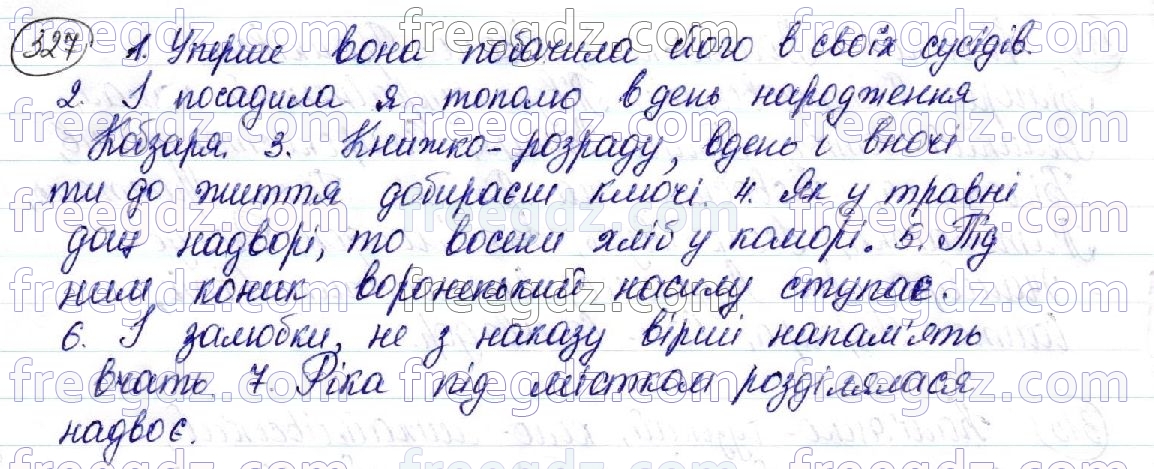 327 1. Уперше вона побачила його в своїх сусідів.
2. І посадила я тополю в день народження
Кобзаря. 3. Книжко-розраду, вдень і вночі
ти до життя добираєш ключі. 4. Як у травні
дощ надворі, то восени хліб у коморі. 5. Під
ним коник вороненький насилу ступає.
6. І залюбки, не з наказу вірші напам'ять
вчать. 7. Ріка під містком розділялася
надвоє.
freegdz.com